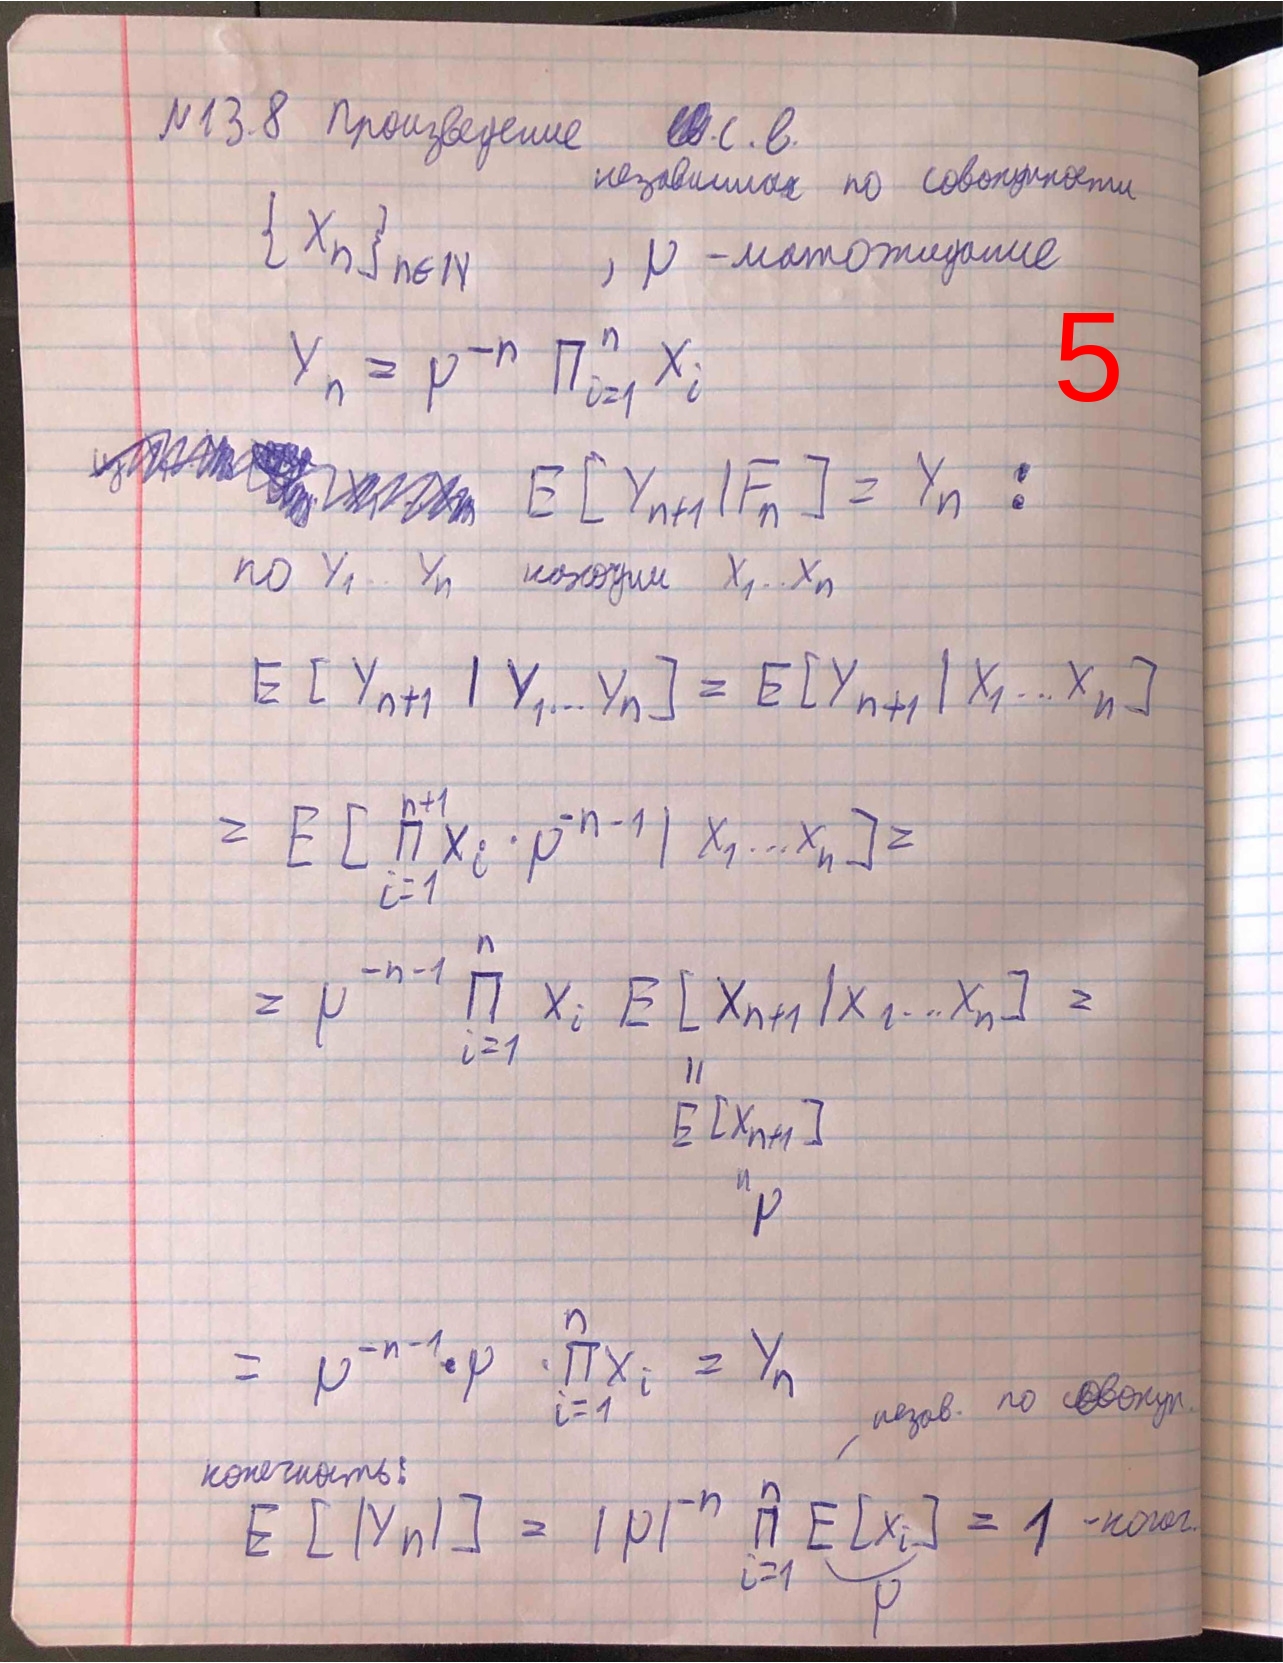 N13.8 Произведение с.в.
независимых по совокупности
{X_n}_{n∈ℕ} , μ - матожидание
Y_n = μ^{-n} Π_{i=1}^{n} X_i
5
E[Y_{n+1} | F_n] = Y_n :
по Y_1.. Y_n находим X_1...X_n
E[Y_{n+1} | Y_1...Y_n] = E[Y_{n+1} | X_1...X_n]
= E[Π_{i=1}^{n+1} X_i · μ^{-n-1} | X_1...X_n] =
= μ^{-n-1} Π_{i=1}^{n} X_i E[X_{n+1} | X_1...X_n] =
=
E[X_{n+1}]
"μ
= μ^{-n-1} · μ · Π_{i=1}^{n} X_i = Y_n
незав. по совокуп.
конечность:
E[|Y_n|] = |μ|^{-n} Π_{i=1}^{n} E[X_i] = 1
μ